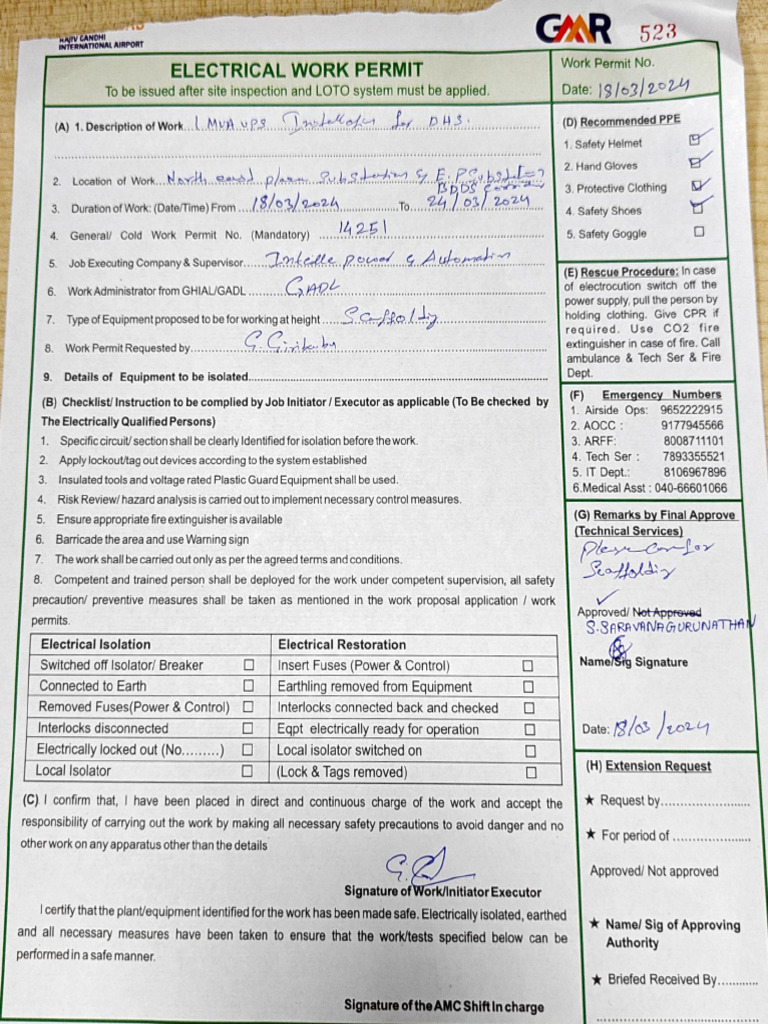 RAJIV GANDHI
INTERNATIONAL AIRPORT
GMR 523
ELECTRICAL WORK PERMIT
To be issued after site inspection and LOTO system must be applied.
Work Permit No.
Date: 18/03/2024
(A) 1. Description of Work 1 MVA UPS for DHS.
2. Location of Work North east
3. Duration of Work: (Date/Time) From 18/03/2024 To 24/03/2024
4. General/ Cold Work Permit No. (Mandatory) 14251
5. Job Executing Company & Supervisor Power & Automation
6. Work Administrator from GHIAL/GADL GADL
7. Type of Equipment proposed to be for working at height
8. Work Permit Requested by
9. Details of Equipment to be isolated
(B) Checklist/ Instruction to be complied by Job Initiator / Executor as applicable (To Be checked by
The Electrically Qualified Persons)
1. Specific circuit/ section shall be clearly Identified for isolation before the work.
2. Apply lockout/tag out devices according to the system established
3. Insulated tools and voltage rated Plastic Guard Equipment shall be used.
4. Risk Review/ hazard analysis is carried out to implement necessary control measures.
5. Ensure appropriate fire extinguisher is available
6. Barricade the area and use Warning sign
7. The work shall be carried out only as per the agreed terms and conditions.
8. Competent and trained person shall be deployed for the work under competent supervision, all safety
precaution/ preventive measures shall be taken as mentioned in the work proposal application / work
permits.
Electrical Isolation Electrical Restoration
Switched off Isolator/ Breaker Insert Fuses (Power & Control)
Connected to Earth Earthling removed from Equipment
Removed Fuses(Power & Control) Interlocks connected back and checked
Interlocks disconnected Eqpt electrically ready for operation
Electrically locked out (No.........) Local isolator switched on
Local Isolator (Lock & Tags removed)
(C) I confirm that, I have been placed in direct and continuous charge of the work and accept the
responsibility of carrying out the work by making all necessary safety precautions to avoid danger and no
other work on any apparatus other than the details
Signature of Work/Initiator Executor
I certify that the plant/equipment identified for the work has been made safe. Electrically isolated, earthed
and all necessary measures have been taken to ensure that the work/tests specified below can be
performed in a safe manner.
Signature of the AMC Shift In charge
(D) Recommended PPE
1. Safety Helmet
2. Hand Gloves
3. Protective Clothing
4. Safety Shoes
5. Safety Goggle
(E) Rescue Procedure: In case
of electrocution switch off the
power supply, pull the person by
holding clothing. Give CPR if
required. Use CO2 fire
extinguisher in case of fire. Call
ambulance & Tech Ser & Fire
Dept.
(F) Emergency Numbers
1. Airside Ops: 9652222915
2. AOCC : 9177945566
3. ARFF: 8008711101
4. Tech Ser : 7893355521
5. IT Dept.: 8106967896
6.Medical Asst : 040-66601066
(G) Remarks by Final Approve
(Technical Services)
Please
Approved/ Not Approved
S.SARAVANAGURUNATHAN
Name/Sig Signature
Date: 18/03/2024
(H) Extension Request
★ Request by
★ For period of
Approved/ Not approved
★ Name/ Sig of Approving
Authority
★ Briefed Received By